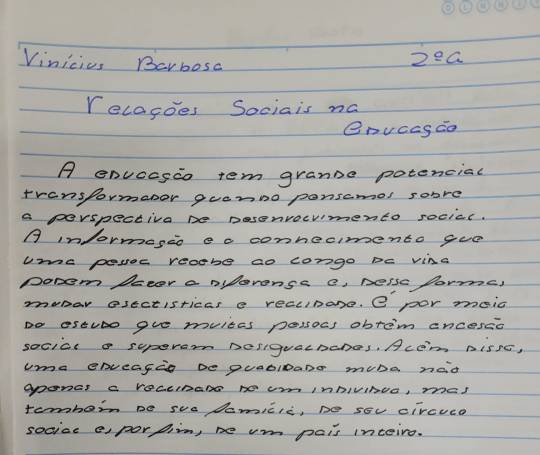 Vinícius Barbosa 2ºa
relações Sociais na
educação
A educação tem grande potencial
transformador quando pensamos sobre
a perspectiva de desenvolvimento social.
A informação e o conhecimento que
uma pessoa recebe ao longo da vida
podem fazer a diferença e, dessa forma,
mudar estatísticas e realidade. É por meio
do estudo que muitas pessoas obtém
social e superam desigualdades. Além disso,
uma educação de qualidade muda não
apenas a realidade de um indivíduo, mas
também de sua família, de seu círculo
social e, por fim, de um país inteiro.